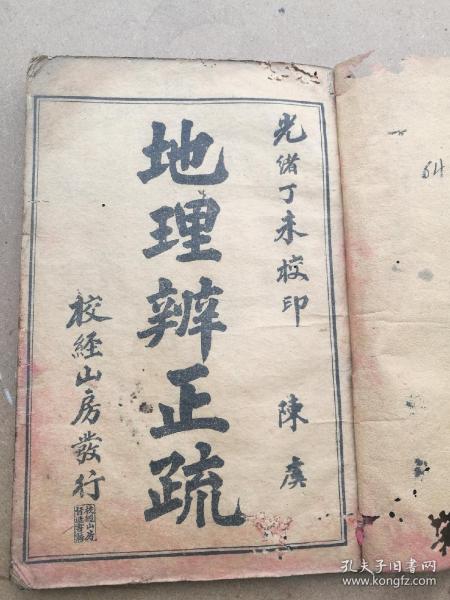 光緒丁未校印
陳虞
地理辨正疏
校經山房發行
孔夫子旧书网
www.kongfz.com